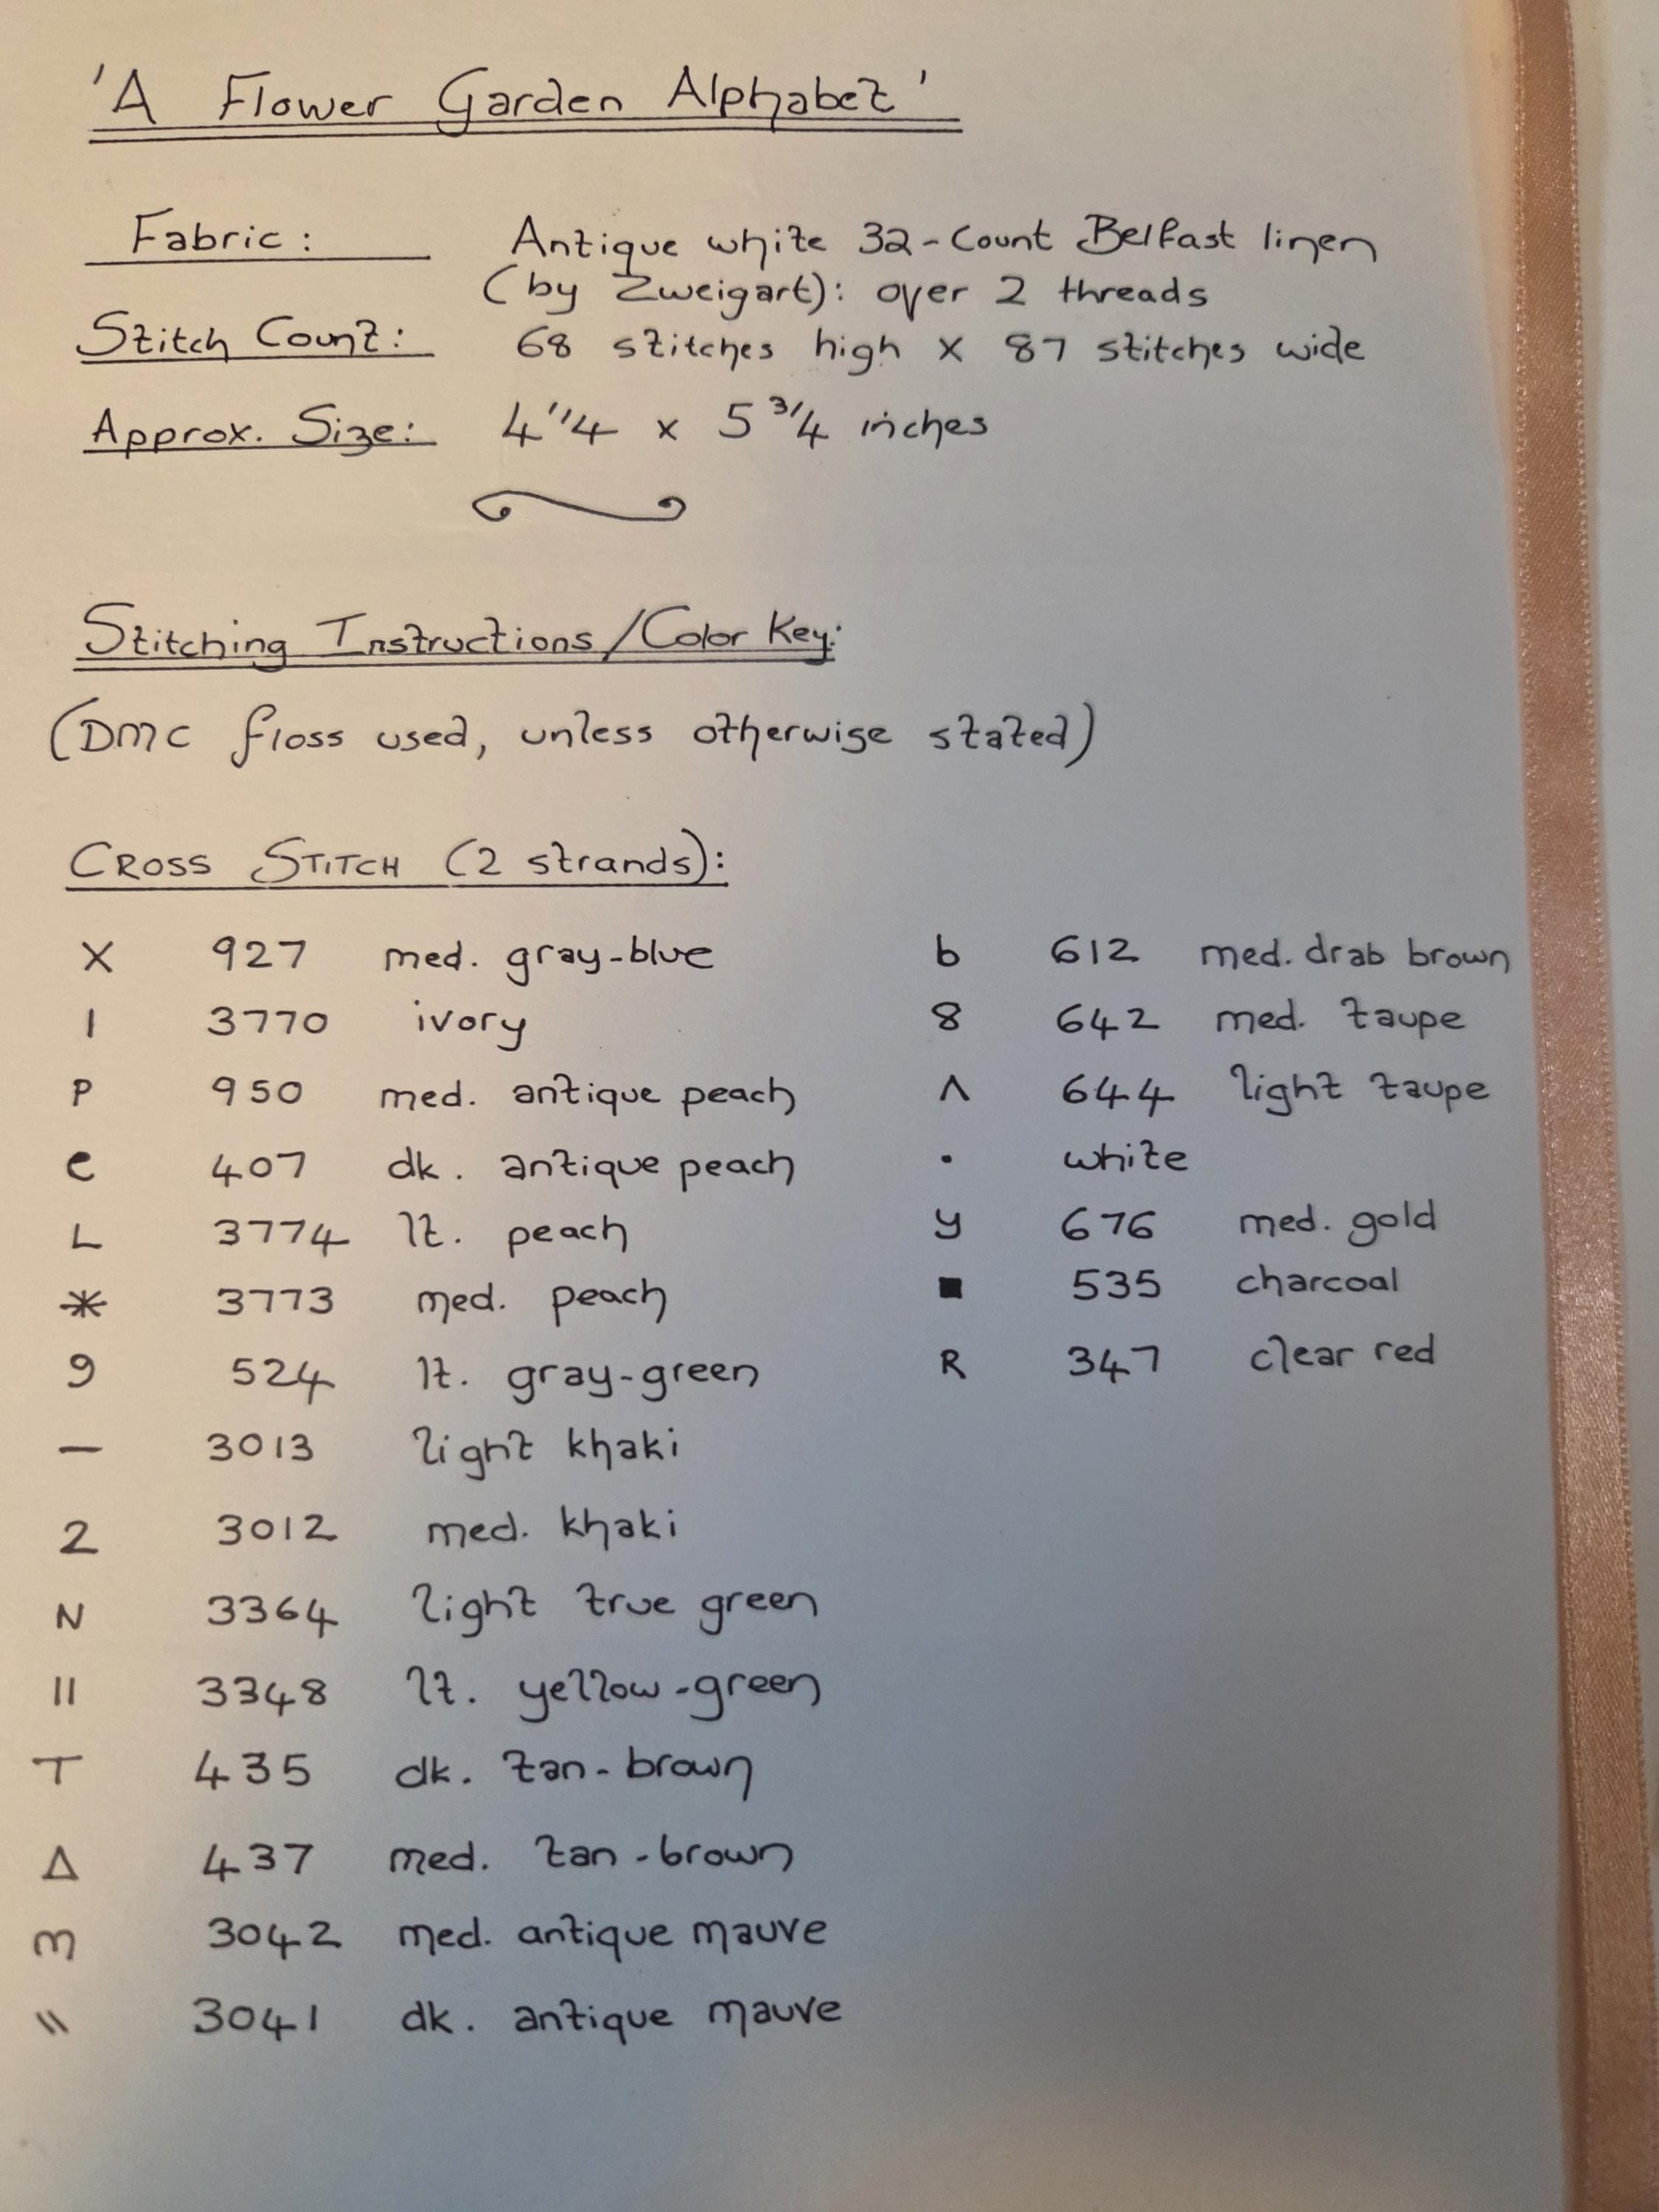 'A Flower Garden Alphabet'
Fabric: Antique white 32-Count Belfast linen
(by Zweigart): over 2 threads
Stitch Count: 68 stitches high x 87 stitches wide
Approx. Size: 4 1/4 x 5 3/4 inches
Stitching Instructions/Color Key:
(DMC floss used, unless otherwise stated)
CROSS STITCH (2 strands):
X 927 med. gray-blue
I 3770 ivory
P 950 med. antique peach
e 407 dk. antique peach
L 3774 lt. peach
* 3773 med. peach
9 524 lt. gray-green
— 3013 light khaki
2 3012 med. khaki
N 3364 light true green
II 3348 lt. yellow-green
T 435 dk. tan-brown
Δ 437 med. tan-brown
m 3042 med. antique mauve
\\ 3041 dk. antique mauve
b 612 med. drab brown
8 642 med. taupe
Λ 644 light taupe
• white
y 676 med. gold
■ 535 charcoal
R 347 clear red